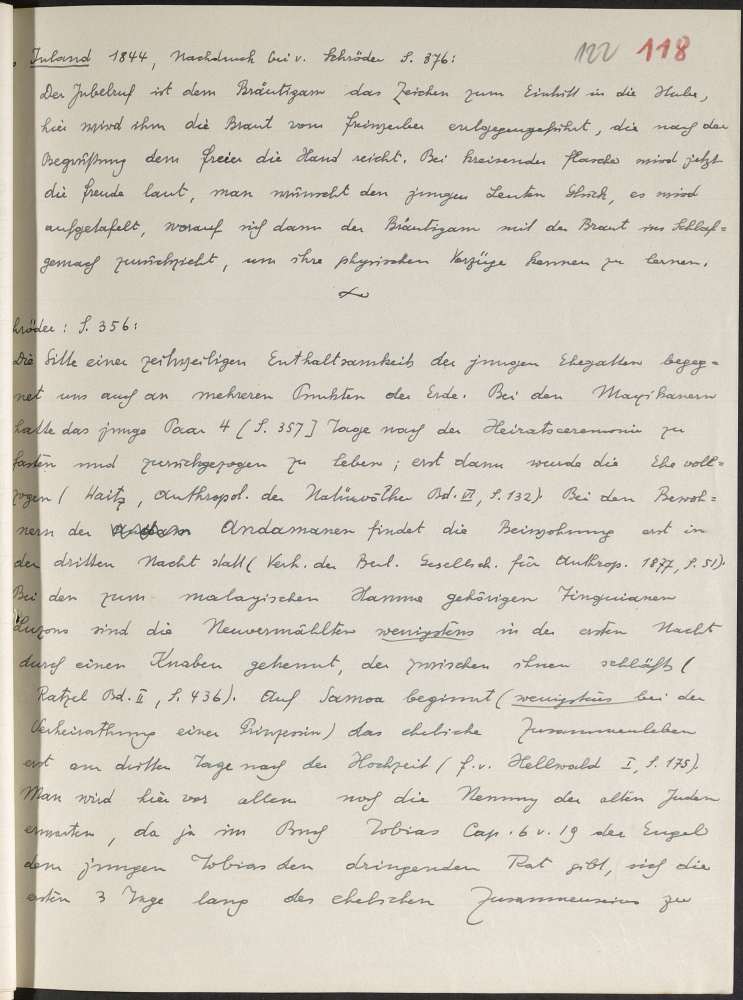 Inland 1844, Nachdruck bei v. Schröder S. 876: 122 118
Der Jubelruf ist dem Bräutigam das Zeichen zum Eintritt in die Stube,
hier wird ihm die Braut vom Freiwerber entgegengeführt, die nach der
Begrüßung dem Freier die Hand reicht. Bei kreisender Flasche wird jetzt
die Freude laut, man wünscht den jungen Leuten Glück, es wird
aufgetafelt, worauf sich dann der Bräutigam mit der Braut ins Schlaf=
gemach zurückzieht, um ihre physischen Vorzüge kennen zu lernen.
hröder: S. 356:
Die Sitte einer zeitweiligen Enthaltsamkeit der jungen Ehegatten begeg=
net uns auch an mehreren Punkten der Erde. Bei den Mexikanern
hatte das junge Paar 4 [S. 357] Tage nach der Heiratsceremonie zu
fasten und zurückgezogen zu leben; erst dann wurde die Ehe voll=
zogen (Waitz, Anthropol. der Naturvölker Bd. VI, S. 132). Bei den Bewoh=
nern der Andamanen findet die Beiwohnung erst in
der dritten Nacht statt (Verh. der Berl. Gesellsch. für Anthrop. 1877, S. 51).
Bei den zum malayischen Stamme gehörigen Tinguianen
Luzons sind die Neuvermählten wenigstens in der ersten Nacht
durch einen Knaben getrennt, der zwischen ihnen schläft (
Ratzel Bd. II, S. 436). Auf Samoa beginnt (wenigstens bei der
Verheirathung einer Prinzessin) das eheliche Zusammenleben
erst am dritten Tage nach der Hochzeit (F. v. Hellwald I, S. 175).
Man wird hier vor allem noch die Nennung der alten Juden
erwarten, da ja im Buch Tobias Cap. 6 v. 19 der Engel
dem jungen Tobias den dringenden Rat gibt, sich die
ersten 3 Tage lang des ehelichen Zusammenseins zu